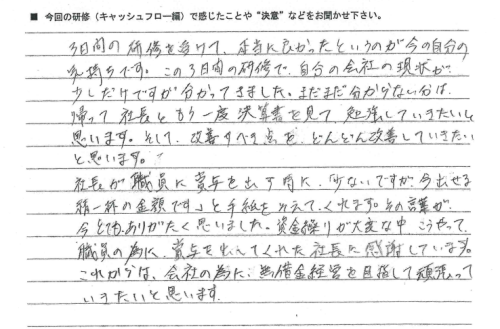 ■ 今回の研修（キャッシュフロー編）で感じたことや“決意”などをお聞かせ下さい。
3日間の研修を受けて、本当に良かったというのが今の自分の
気持ちです。この3日間の研修で、自分の会社の現状が、
少しだけですが分かってきました。まだまだ分からない分は、
帰って社長ともう一度決算書を見て、勉強していきたいと
思います。そして、改善すべき点を、どんどん改善していきたい
と思います。
社長が職員に賞与を出す時に、「少ないですが、今出せる
精一杯の金額です」と手紙を添えてくれます。その言葉が、
今とてもありがたく思いました。資金繰りが大変な中、こうやって、
職員の為に、賞与を出してくれた社長に感謝しています。
これからは、会社の為に、無借金経営を目指して頑張って
いきたいと思います。